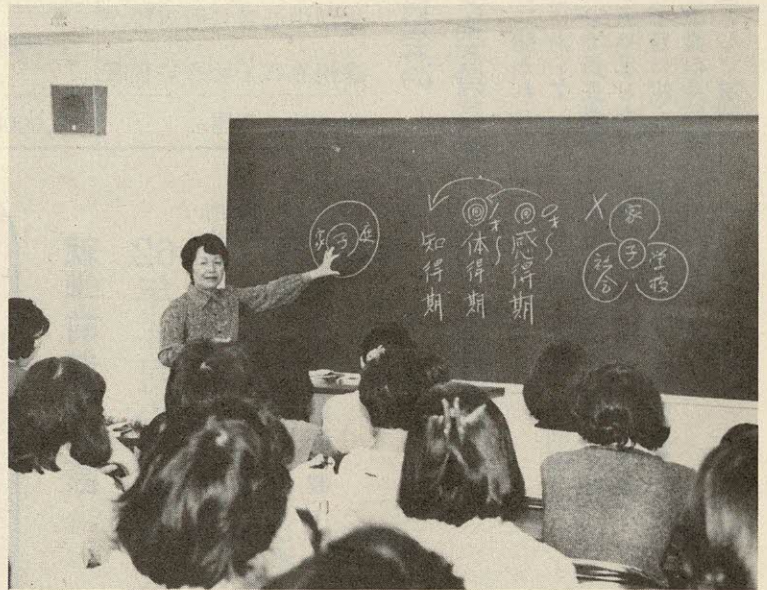 X
家
子
社会
学校
0才〜
感得期
体得期
知得期
家子庭